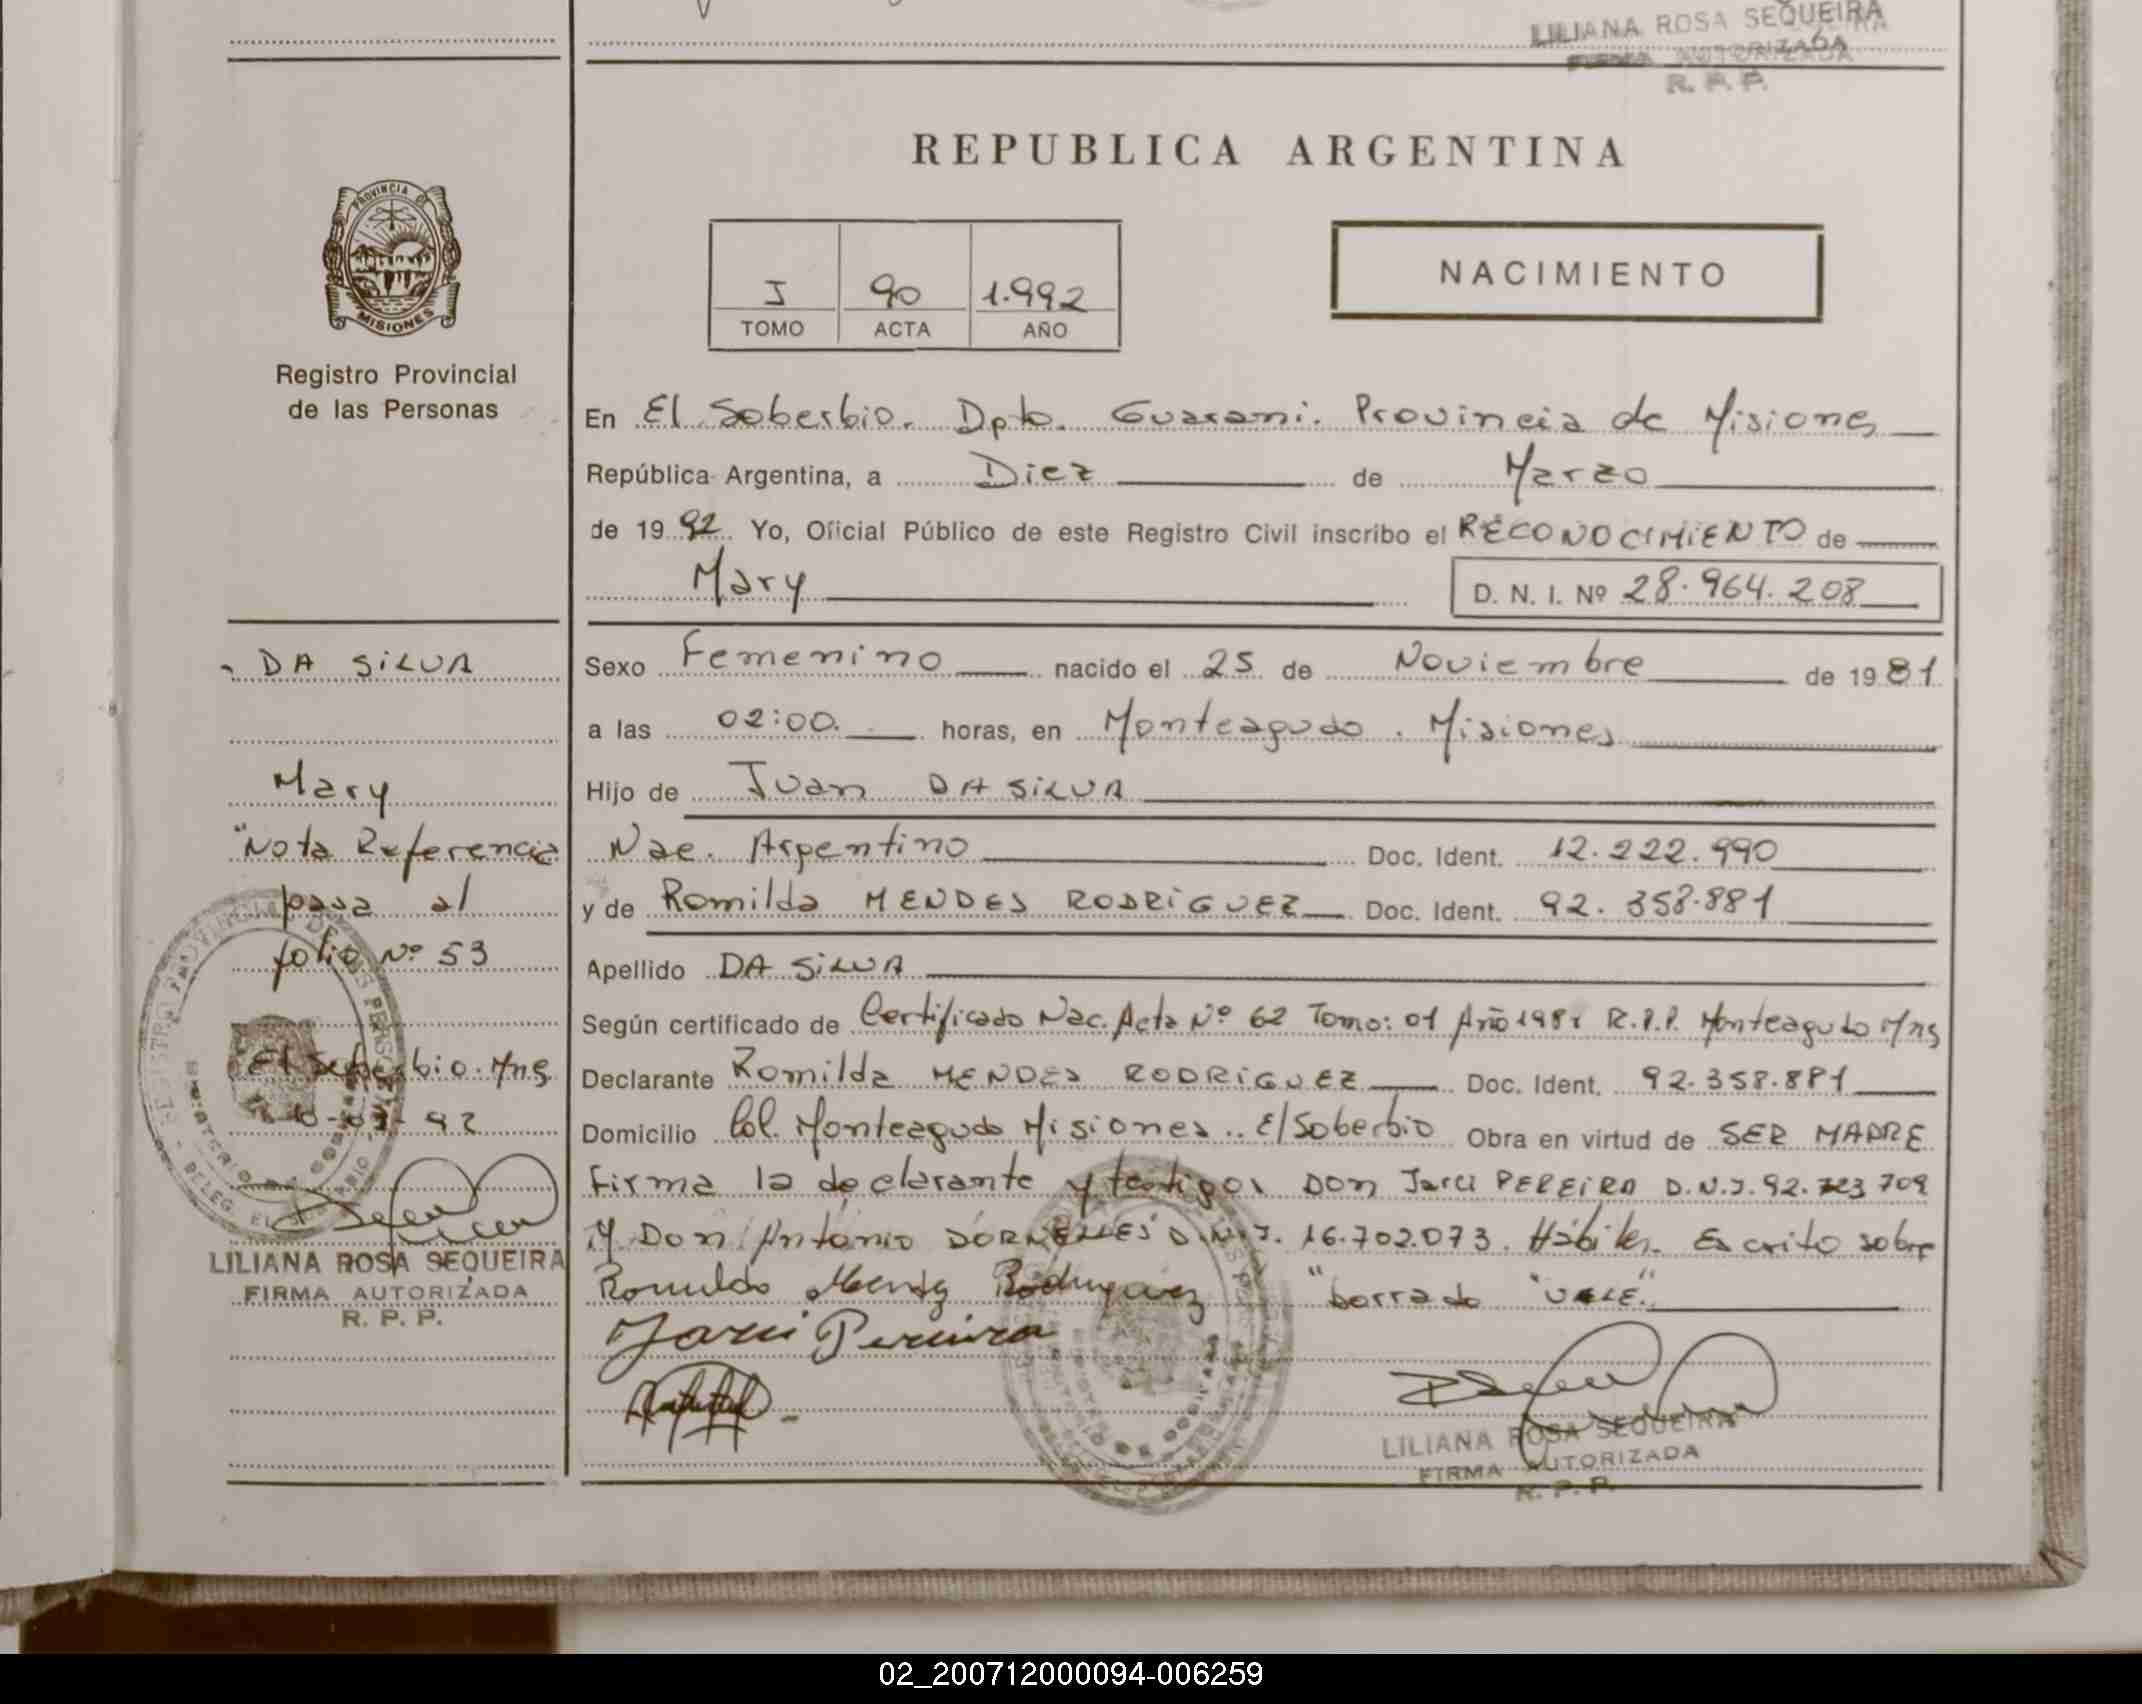 LILIANA ROSA SEQUEIRA
FIRMA AUTORIZADA
R. P. P.
REPUBLICA ARGENTINA
PROVINCIA DE
MISIONES
Registro Provincial
de las Personas
I 90 1.992
TOMO ACTA AÑO
NACIMIENTO
En El Soberbio. Dpto. Guarani. Provincia de Misiones
República Argentina, a Diez de Marzo
de 19 92 Yo, Oficial Público de este Registro Civil inscribo el RECONOCIMIENTO de
Mary
D. N. I. Nº 28.964.208
Sexo Femenino nacido el 25 de Noviembre de 19 81
a las 02:00. horas, en Monteagudo. Misiones
Hijo de Juan DA SILVA
Nac. Argentino Doc. Ident. 12.222.990
y de Romilda MENDES RODRIGUEZ Doc. Ident. 92.358.881
Apellido DA SILVA
Según certificado de Certificado Nac. Acta Nº 62 Tomo: 01 Año 1981 R.P.P. Monteagudo Mns
Declarante Romilda MENDES RODRIGUEZ Doc. Ident. 92.358.881
Domicilio Col. Monteagudo Misiones.. El Soberbio Obra en virtud de SER MADRE
Firma la declarante y testigos DON Jarci PEREIRA D.N.I. 92.723 709
Y Don Antonio DORNELLES D.N.I. 16.702.073. Hábiles. Escrito sobre
"borrado "VALE".
Jarci Pereira
LILIANA ROSA SEQUEIRA
FIRMA AUTORIZADA
R. P. P.
DA SILVA
Mary
"Nota Referencia
pasa al
folio Nº 53
El Soberbio. Mns
10-03-92
LILIANA ROSA SEQUEIRA
FIRMA AUTORIZADA
R. P. P.
02_200712000094-006259